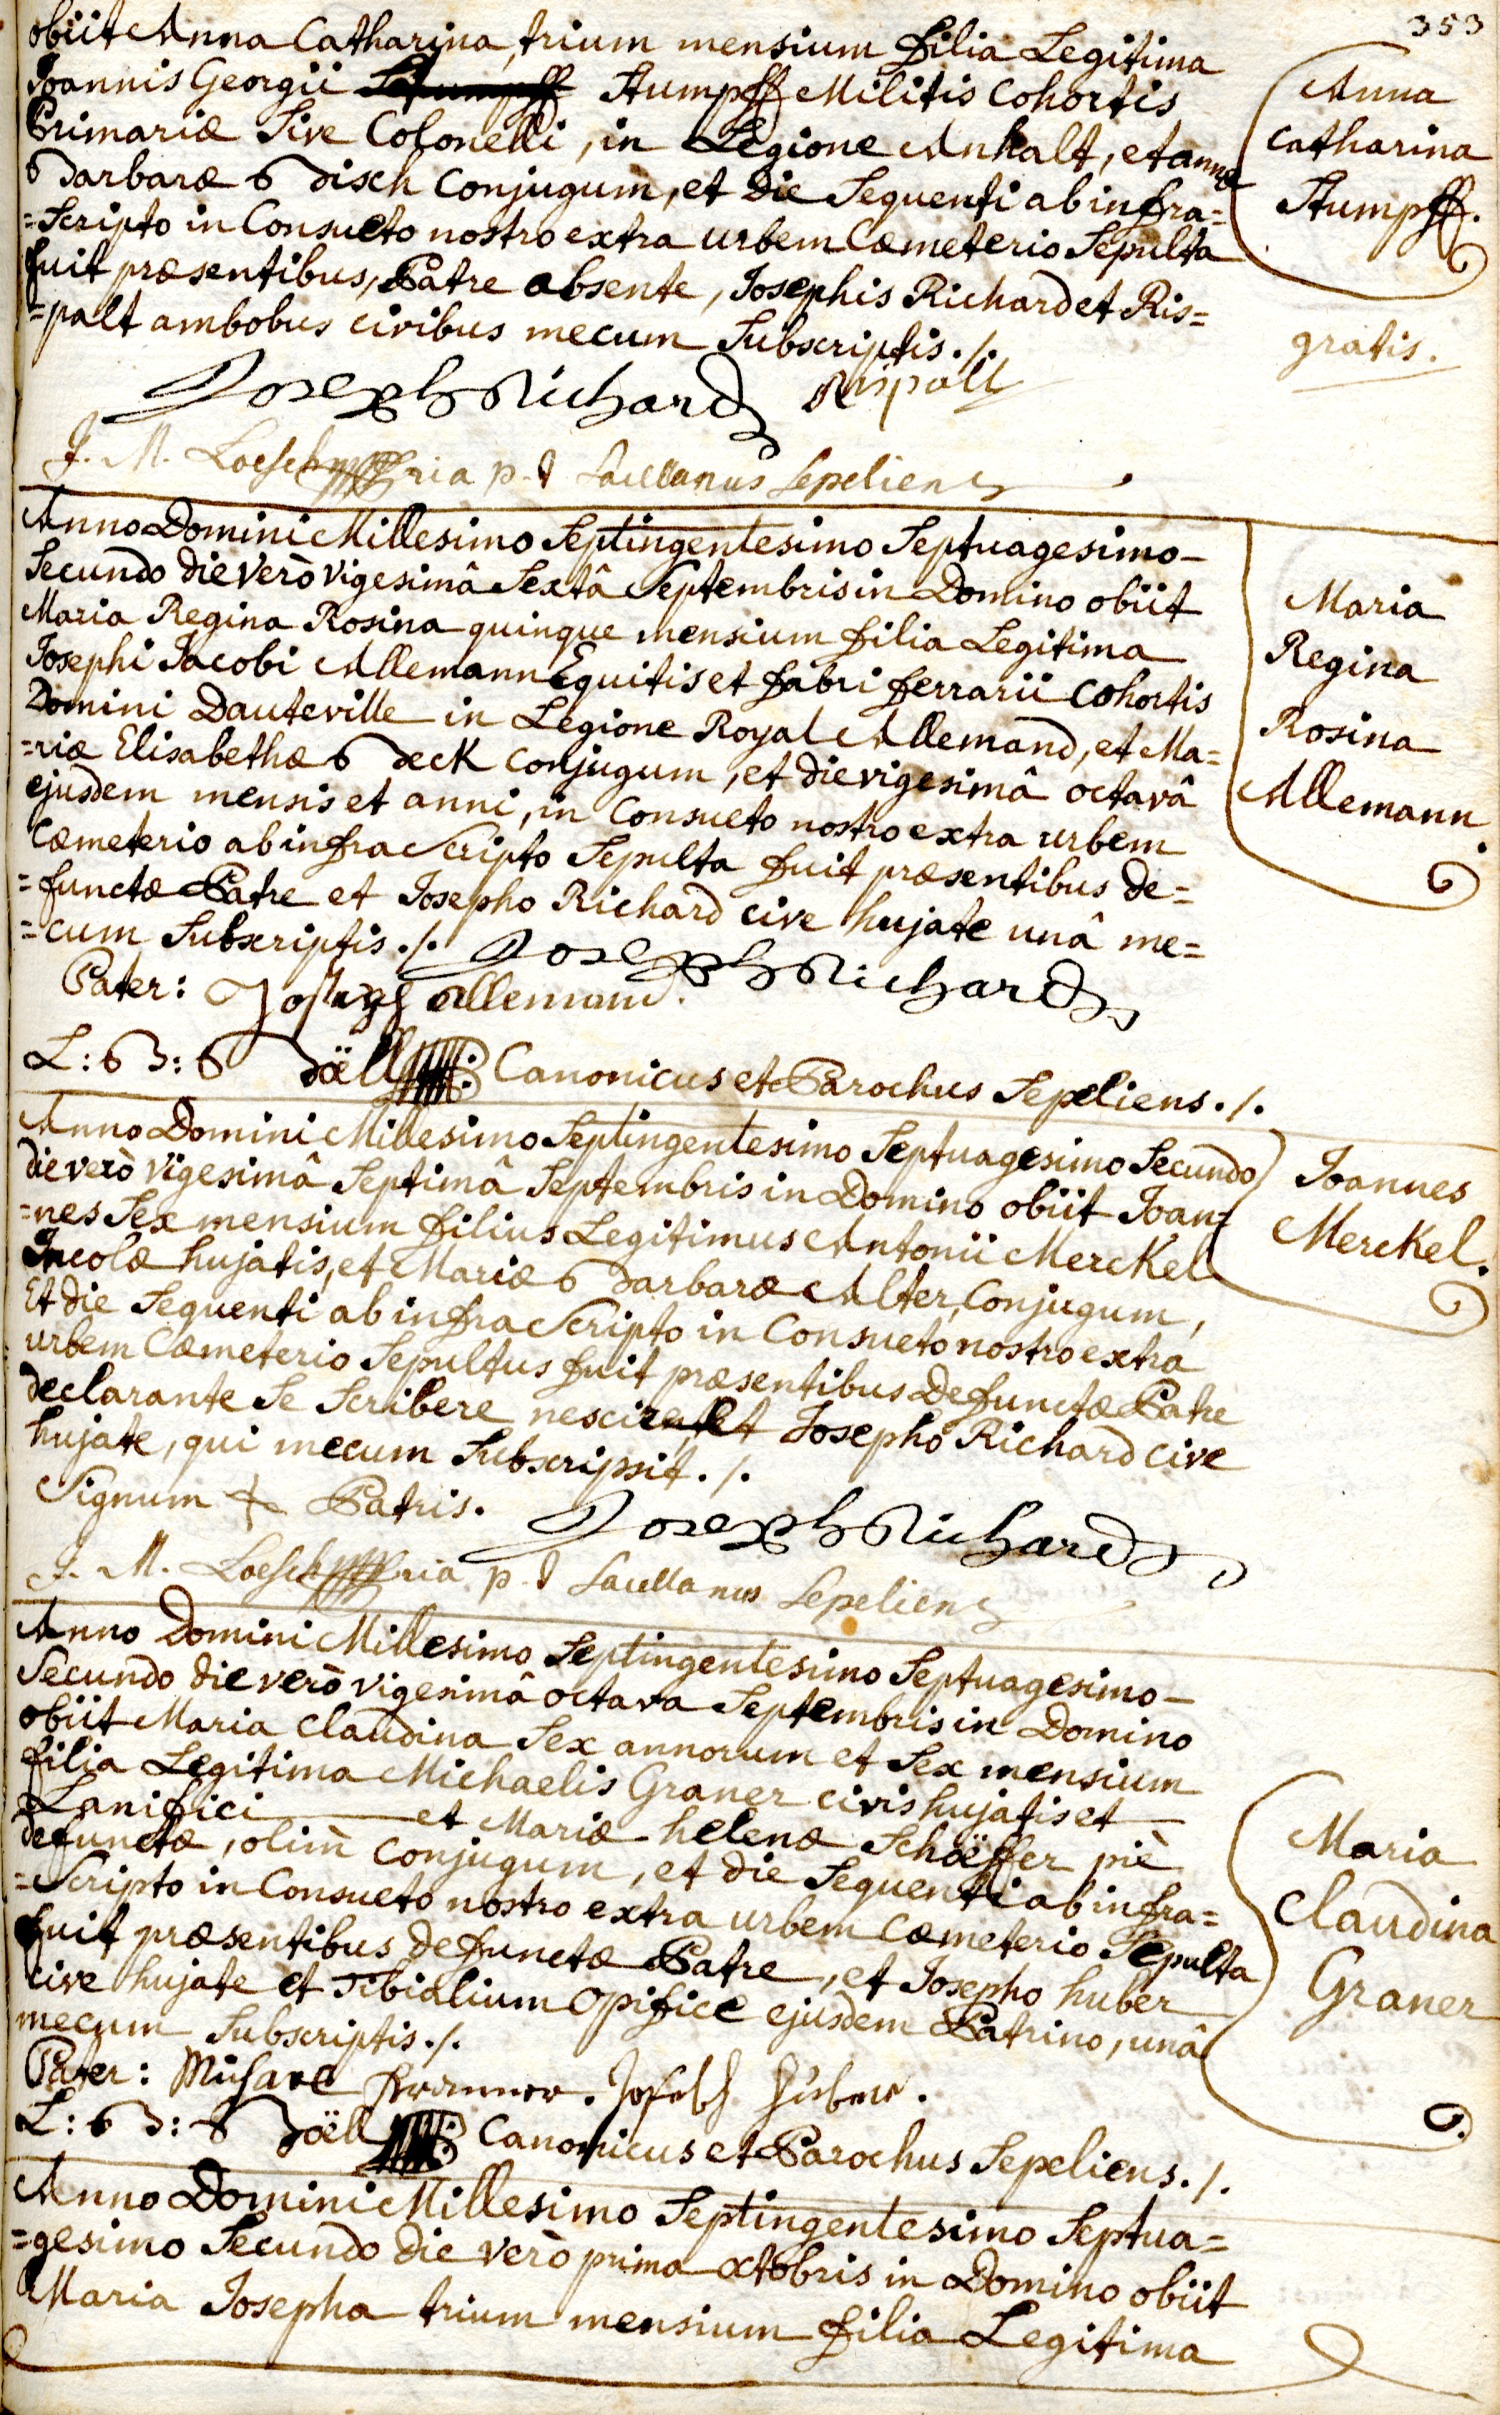 353
obiit Anna Catharina, trium mensium filia Legitima
Joannis Georgii Stumpff Stumpff Militis Cohortis
Primariæ Sive Colonelli, in Legione Anhalt, et annæ
Barbaræ Bisch Conjugum, et die Sequenti ab infra=
=Scripto in Consueto nostro extra urbem Cæmeterio Sepulta
fuit præsentibus, Patre absente, Josephis Richard et Ris=
=palt ambobus civibus mecum Subscriptis ./.
Joseph Richard Rispalt
J. M. Loesch p. t Sacellanus Sepeliens
Anna
Catharina
Stumpff.
gratis.
Anno Domini Millesimo Septingentesimo Septuagesimo
Secundo die verò vigesimâ Sextâ Septembris in Domino obiit
Maria Regina Rosina quinque mensium filia Legitima
Josephi Jacobi Allemann Equitis et fabri ferrarii Cohortis
Domini Dauteville in Legione Royal Allemand, et Ma=
=riæ Elisabethæ Beck Conjugum, et die vigesimâ octavâ
ejusdem mensis et anni, in Consueto nostro extra urbem
Cæmeterio ab infra Scripto Sepulta fuit præsentibus de=
=functæ Patre et Josepho Richard cive hujate unâ me=
=cum Subscriptis ./. Joseph Richard
Pater: Joseph allemand.
L: B: Böll Canonicus et Parochus Sepeliens ./.
Maria
Regina
Rosina
Allemann.
Anno Domini Millesimo Septingentesimo Septuagesimo Secundo
die verò vigesimâ Septimâ Septembris in Domino obiit Joan=
=nes Sex mensium filius Legitimus Antonii Merckel
Incolæ hujatis, et Mariæ Barbaræ Alter, Conjugum,
Et die Sequenti ab infra Scripto in Consueto nostro extra
urbem Cæmeterio Sepultus fuit præsentibus Defunctæ Patre
declarante Se Scribere nescire, et Josepho Richard cive
hujate, qui mecum Subscripsit ./.
Signum + Patris. Joseph Richard
J. M. Loesch p. t Sacellanus Sepeliens
Joannes
Merckel.
Anno Domini Millesimo Septingentesimo Septuagesimo
Secundo die verò vigesimâ octava Septembris in Domino
obiit Maria Claudina Sex annorum et Sex mensium
filia Legitima Michaelis Graner civis hujatis et
Lanifici et Mariæ helenæ Schöëffer piè
defunctæ, olim Conjugum, et die Sequenti ab infra=
=Scripto in Consueto nostro extra urbem Cæmeterio Sepulta
fuit præsentibus defunctæ Patre, et Josepho huber
cive hujate et Tibialium Opifice ejusdem Patrino, unâ
mecum Subscriptis ./.
Pater: Joseph Huber.
L: B: Böll Canonicus et Parochus Sepeliens ./.
Maria
Claudina
Graner
Anno Domini Millesimo Septingentesimo Septua=
=gesimo Secundo die verò prima octobris in Domino obiit
Maria Josepha trium mensium filia Legitima